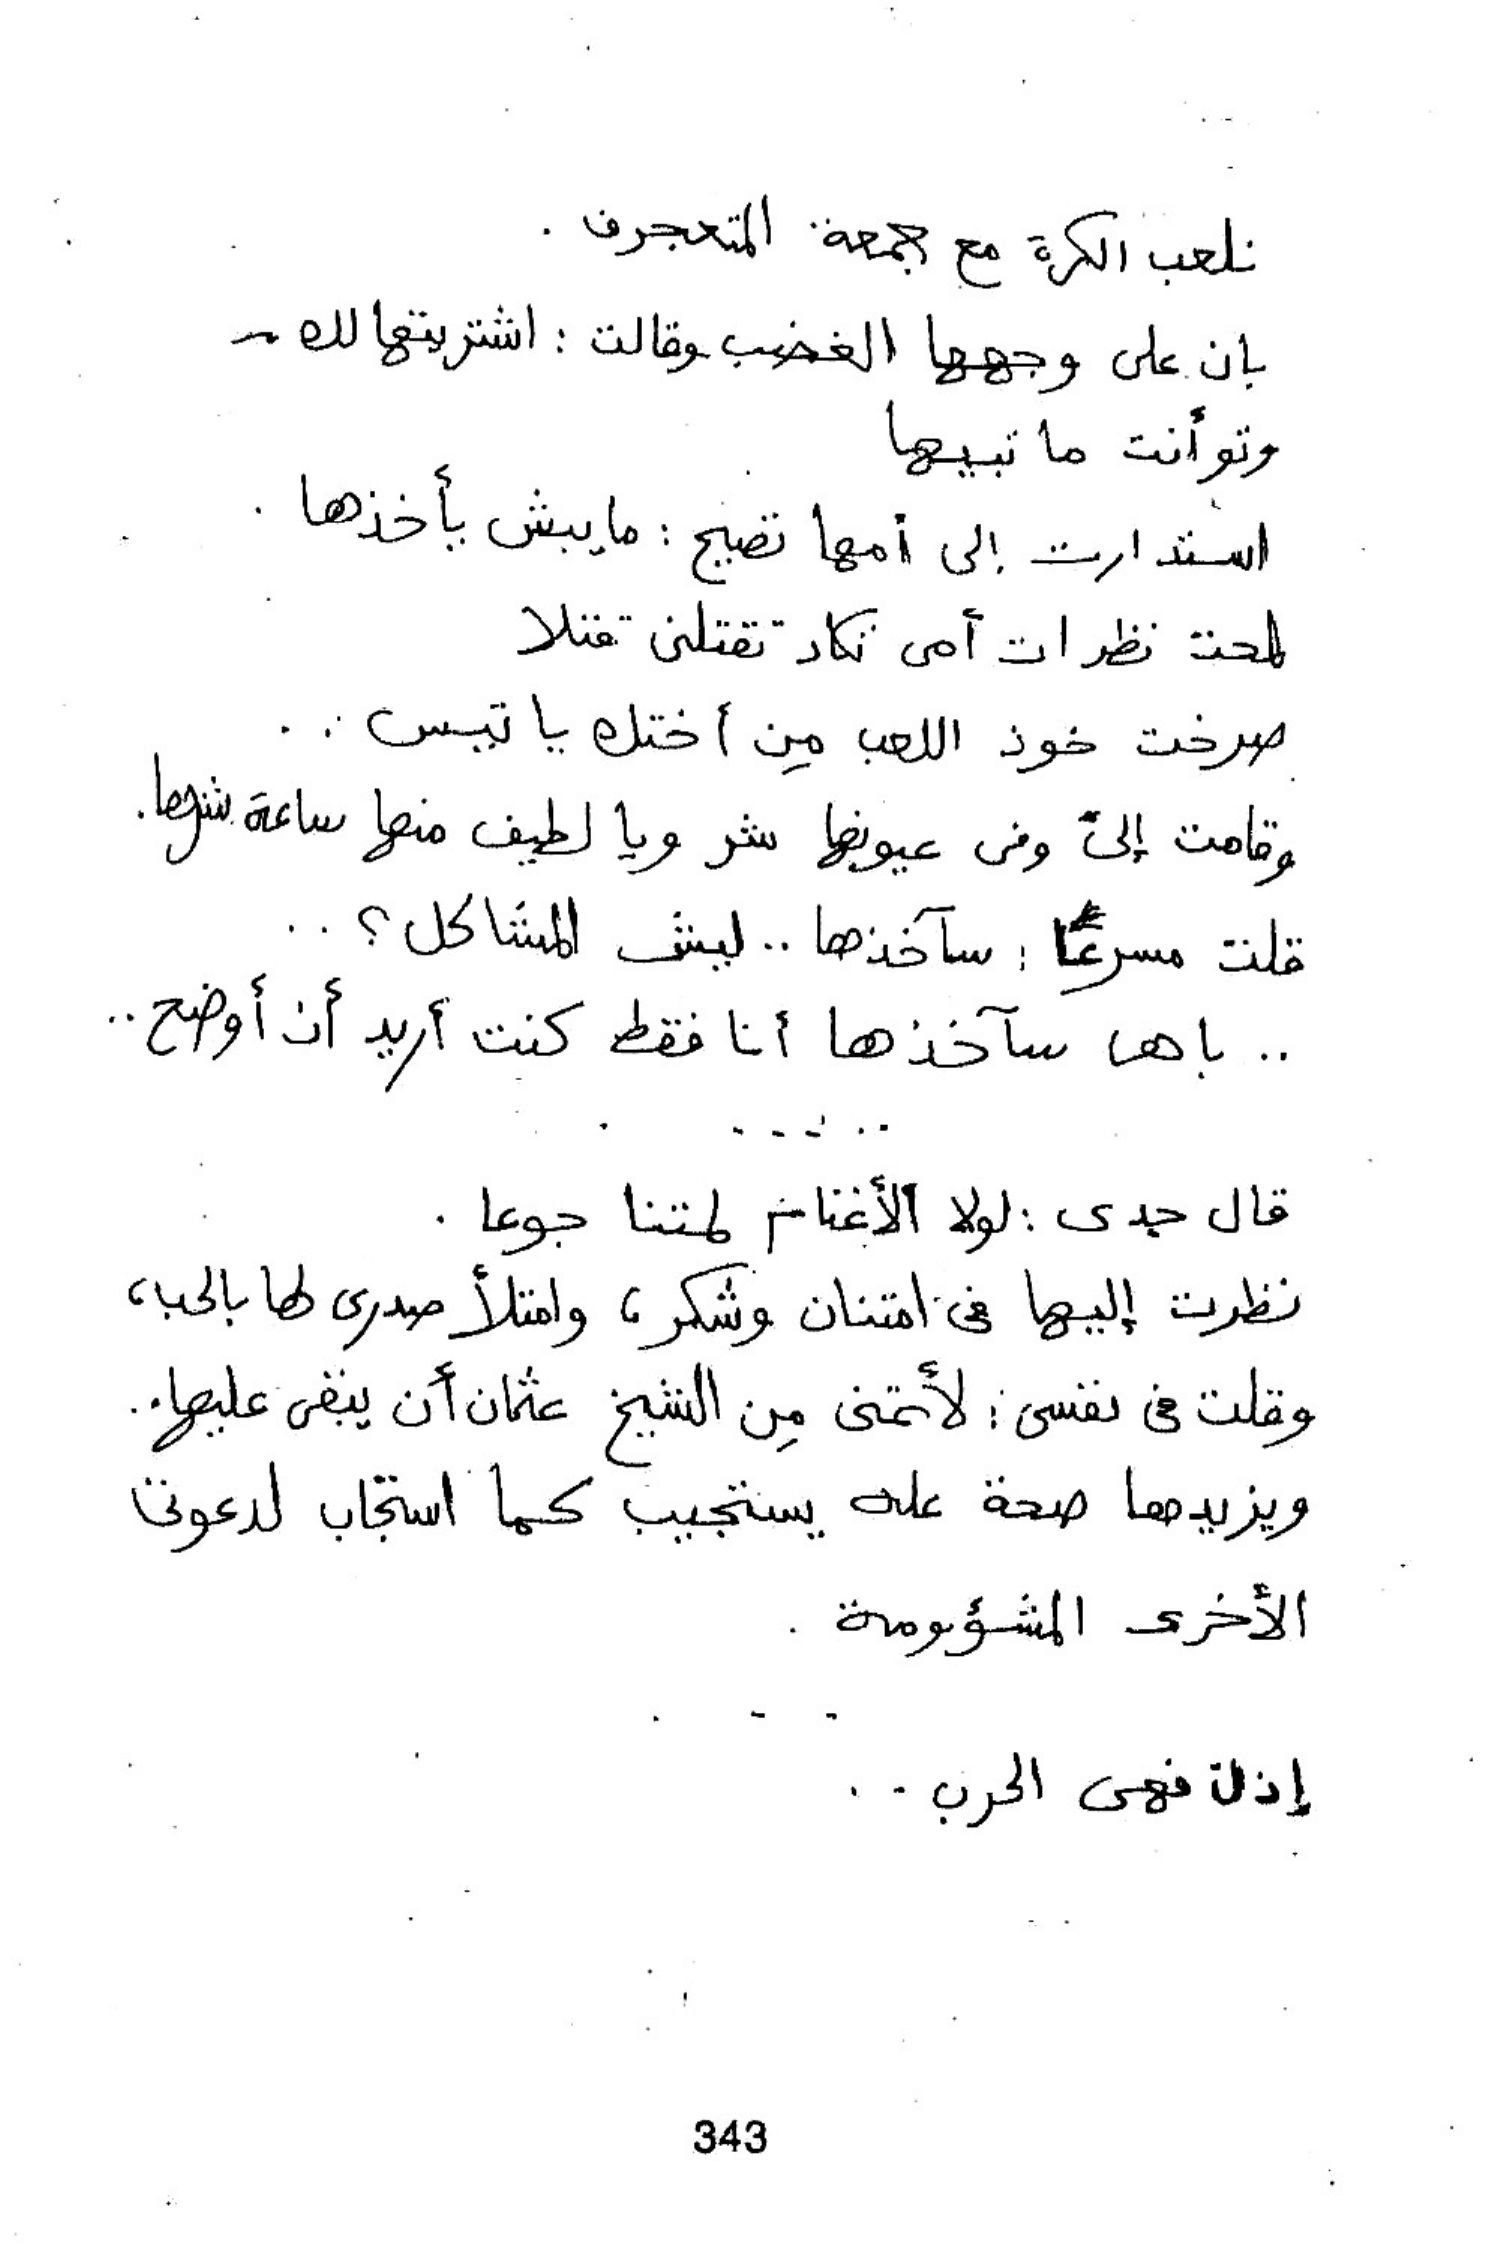 نلعب الكرة مع جمعة المتعجرف .
بان على وجهها الغضب وقالت : اشتريتها لك ..
وتو أنت ما تبيها
استدارت إلى أمها تصيح : مايبش يأخذها .
لمحت نظرات أمى تكاد تقتلنى قتلا
صرخت خوذ اللعب مِن أختك يا تيس ..
وقامت إلىّ وفى عيونها شر ويا لطيف منها ساعة شرها .
قلت مسرعًا : سآخذها .. ليش المشاكل ؟ ..
.. باهى سآخذها أنا فقط كنت أريد أن أوضح ..
......
قال جدى : لولا الأغنام لمتنا جوعا .
نظرت إليها فى امتنان وشكر ، وامتلأ صدرى لها بالحب ،
وقلت فى نفسى : لأتمنى مِن الشيخ عثمان أن يبقى عليها ..
ويزيدها صحة عله يستجيب كما استجاب لدعوتى
الأخرى المشؤومة .
...
إذن فهى الحرب ..
343